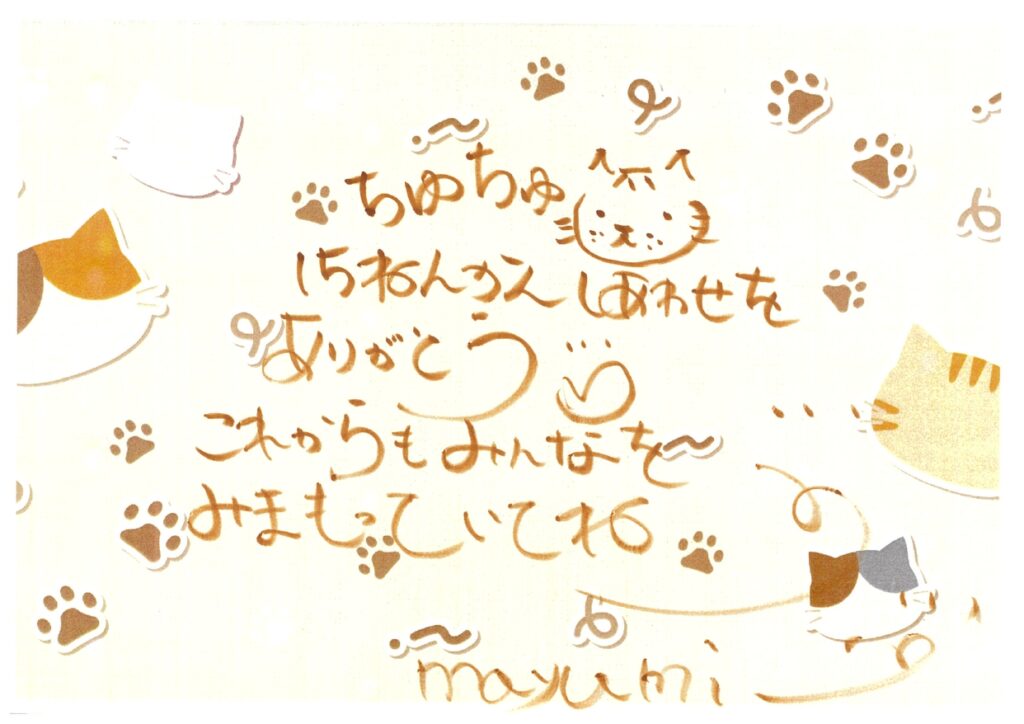 ちゅちゅ
いちねんかん しあわせを
ありがとう
これからもみんなを
みまもっていてね
mayumi